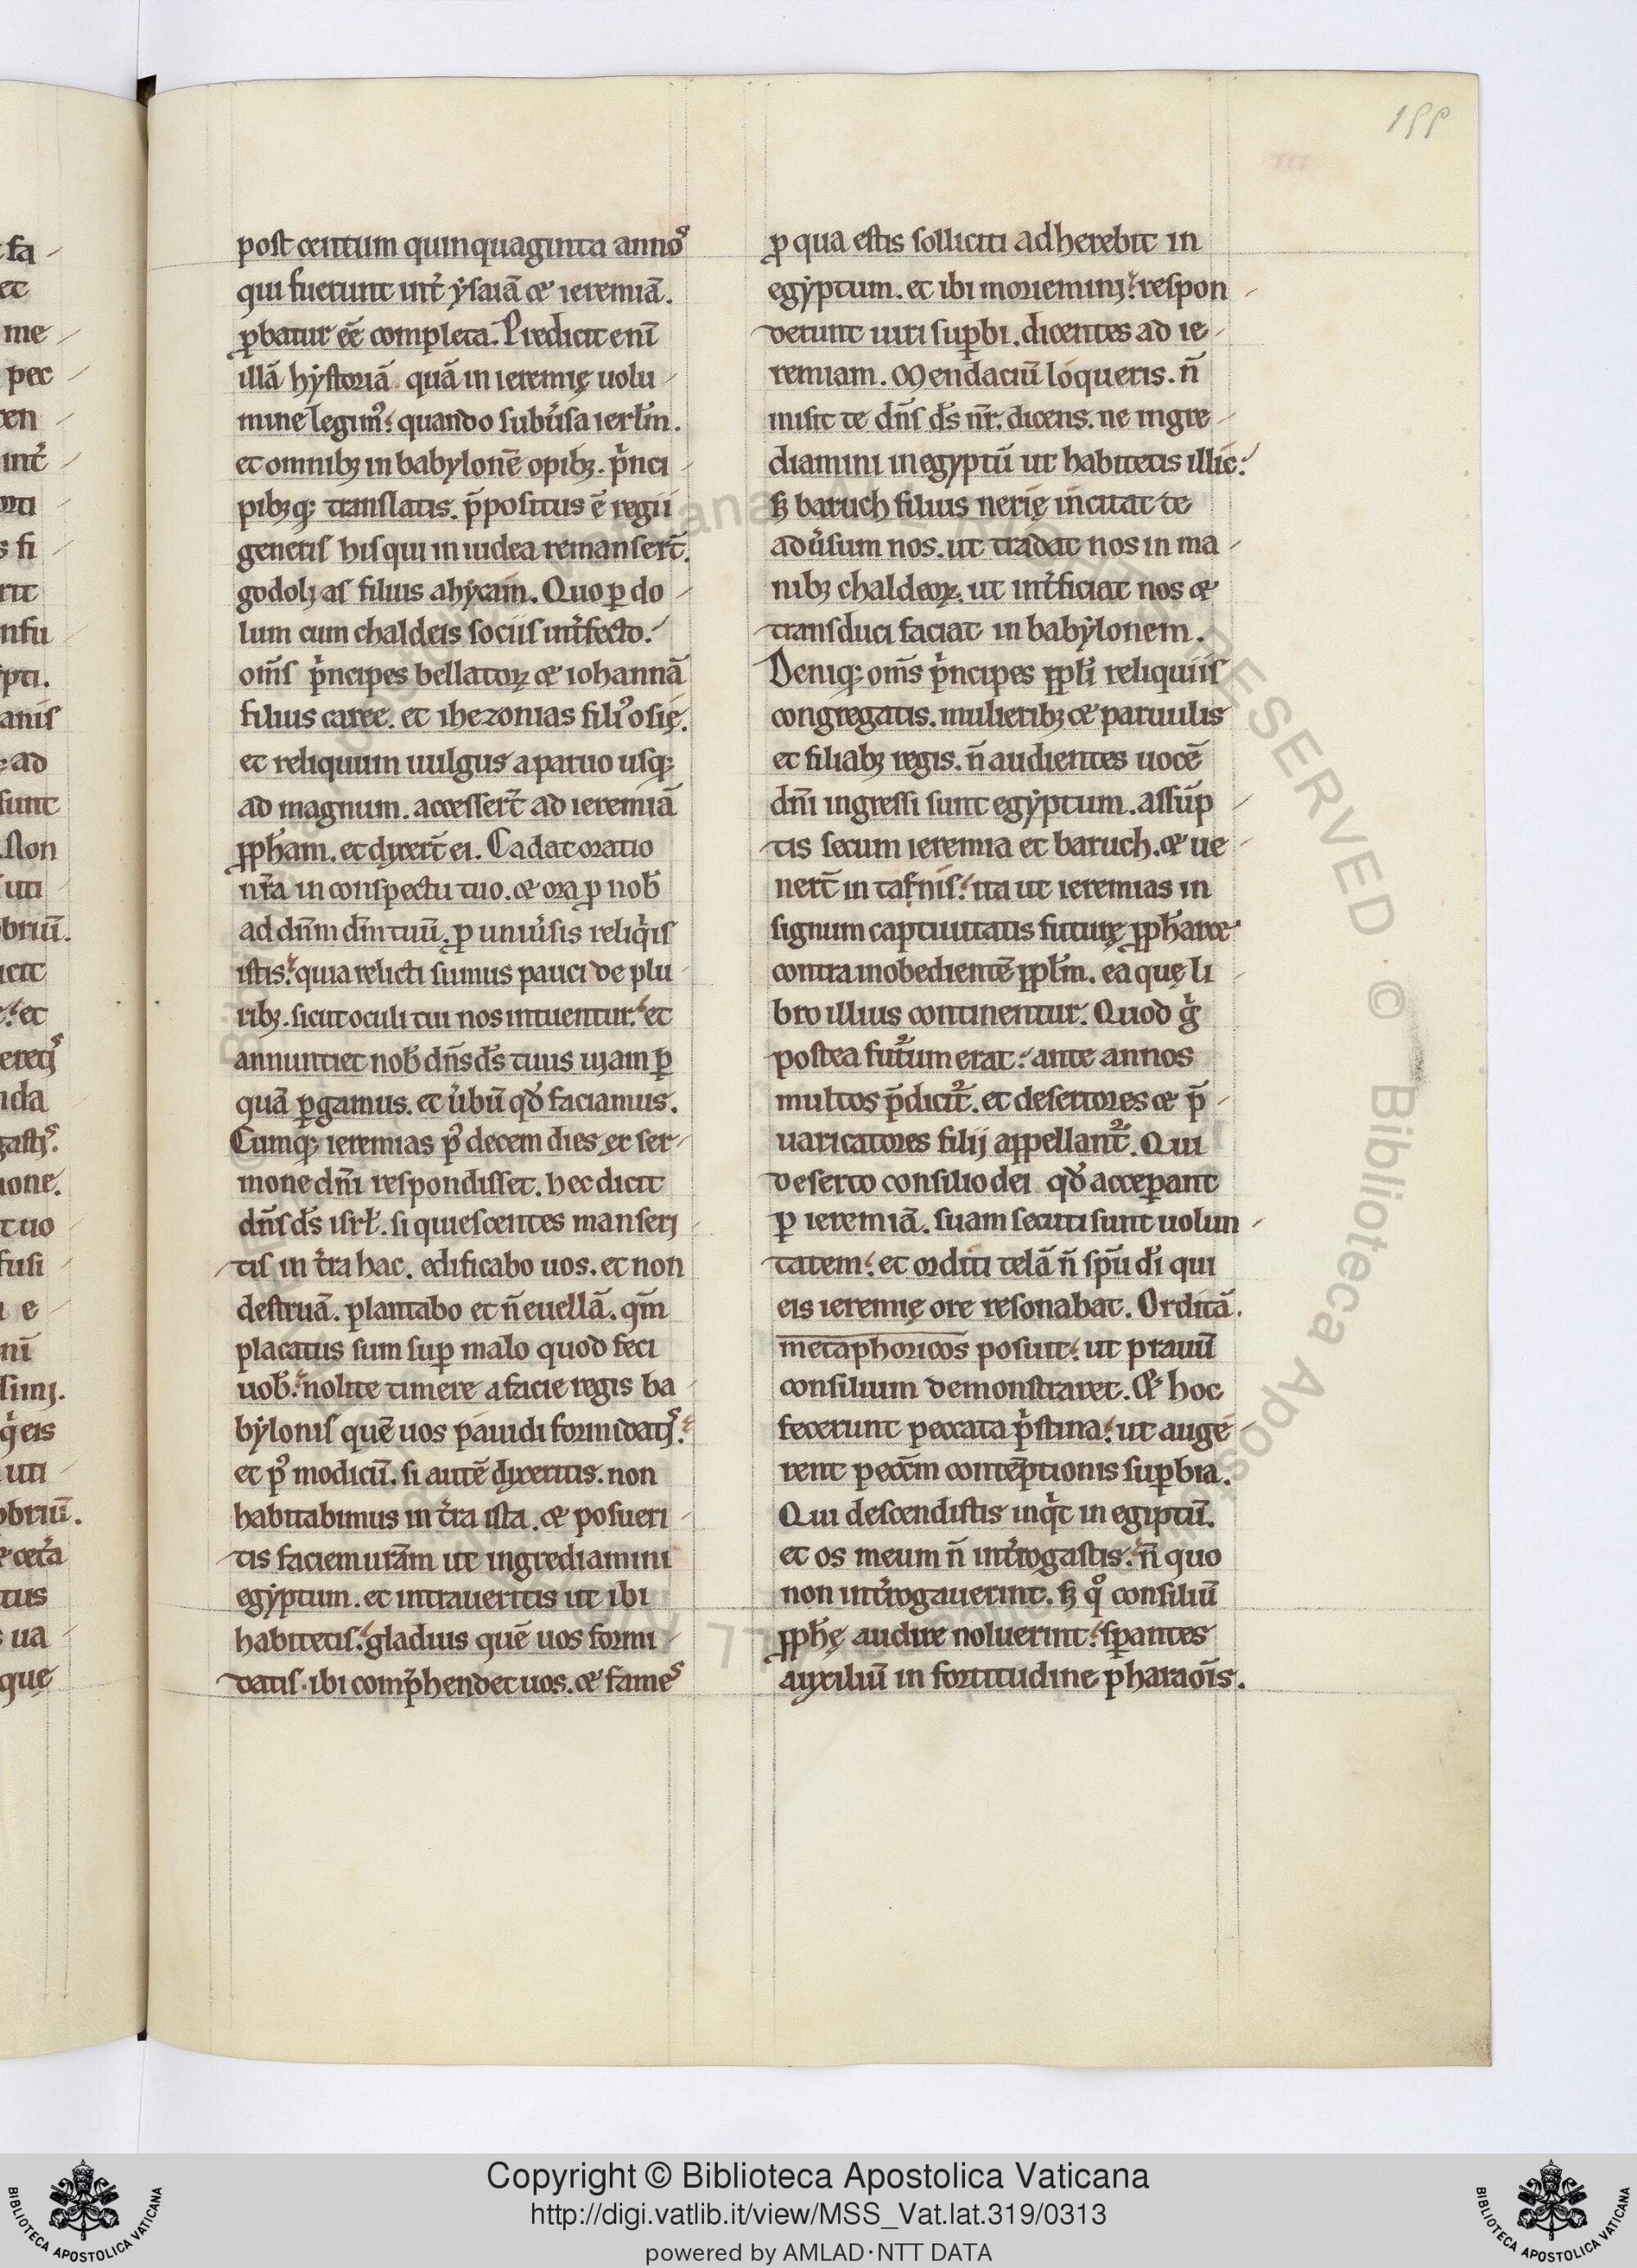 155
post centum quinquaginta annoꝰ
qui fuerunt int̉ ẏsaiā & ieremiā.
ꝓbatur eē completa. Predicit enī
illā hẏstoriā quā in ieremię uolu-
mine legimꝰ: quando subũsa ierłm.
et omnibꝫ in babylonē opibꝫ. p̉nci-
pibꝫqꝫ translatis. p̄positus ē regii
generis his qui in iudea remanserт̄.
godolias filius ahycam. Quo ꝑ do-
lum cum chaldeis sociis int̉fecto.
om̄s p̉ncipes bellatoꝝ & iohannā
filius caree. et ihezonias filiꝰ osię.
et reliquum uulgus a paruo usqꝫ
ad magnum. accessert̄ ad ieremiā
ꝓpham. et dixert̄ ei. Cadat oratio
nr̄a in conspectu tuo. & ora ꝓ nob̄
ad dn̄m dm̄ tuū. ꝓ uniũsis reliq̉is
istis: quia relicti sumus pauci de plu-
ribꝫ. sicut oculi tui nos intuentur: et
annuntiet nob̄ dn̄s ds̄ tuus uiam ꝑ
quā ꝑgamus. et ũbū qđ faciamus.
Cumqꝫ ieremias pꝰ decem dies ex ser-
mone dn̄i respondisset. hec dicit
dn̄s ds̄ isrł. si quiescentes manseri-
tis in t̉ra hac. edificabo uos. et non
destruā. plantabo et n̄ euellā. qm̄
placatus sum suꝑ malo quod feci
uob̄: nolite timere a facie regis ba-
bẏlonis quē uos pauidi formidatis:
et pꝰ modicū. si autē dixeritis. non
habitabimus in t̉ra ista. & posueri-
tis faciem ur̄am ut ingrediamini
egẏptum. et intraueritis ut ibi
habitetis: gladius quē uos formi-
datis. ibi comp̄hendet uos. & fames
ꝓ qua estis solliciti adherebit in
egẏptum. et ibi moriemini: respon-
derunt uiri suꝑbi. dicentes ad ie-
remiam. Mendaciū loqueris. n̄
misit te dn̄s ds̄ nr̄. dicens. ne ingre-
diamini in egyptū ut habitetis illic:
sꝫ baruch filius nerię incitat te
adũsum nos. ut tradat nos in ma-
nibꝫ chaldeoꝝ. ut int̉ficiat nos &
transduci faciat in babẏlonem.
Deniqꝫ om̄s p̉ncipes ꝓpłi reliquiis
congregatis. mulieribꝫ & paruulis
et filiabꝫ regis. n̄ audientes uocē
dn̄i ingressi sunt egẏptum. assūp-
tis secum ieremia et baruch. & ue-
nert̄ in tafnis: ita ut ieremias in
signum captiuitatis futurę ꝓpharet
contra inobedientē ꝓpłm. ea quę li-
bro illius continentur. Quod g̉
postea futurum erat: ante annos
multos p̄dicit᷑. et desertores & p̄-
uaricatores filij appellant᷑. Qui
deserto consilio dei qđ acceperant
ꝑ ieremiā. suam secuti sunt uolun-
tatem: et orditi telā n̄ sp̄u dī qui
eis ieremię ore resonabat. Orditā.
metaphoricos posuit: ut prauū
consilium demonstraret. & hoc
fecerunt peccata p̉stina: ut auge-
rent pecc̄m contēptionis suꝑbia.
Qui descendistis inq̉t in egiptū.
et os meum n̄ int̉rogastis: n̄ quo
non int̉rogauerint. sꝫ qͦ consiliū
ꝓphę audire noluerint: sꝑantes
auxiliū in fortitudine pharaoīs.
Copyright © Biblioteca Apostolica Vaticana
http://digi.vatlib.it/view/MSS_Vat.lat.319/0313
powered by AMLAD·NTT DATA
BIBLIOTECA APOSTOLICA VATICANA
BIBLIOTECA APOSTOLICA VATICANA